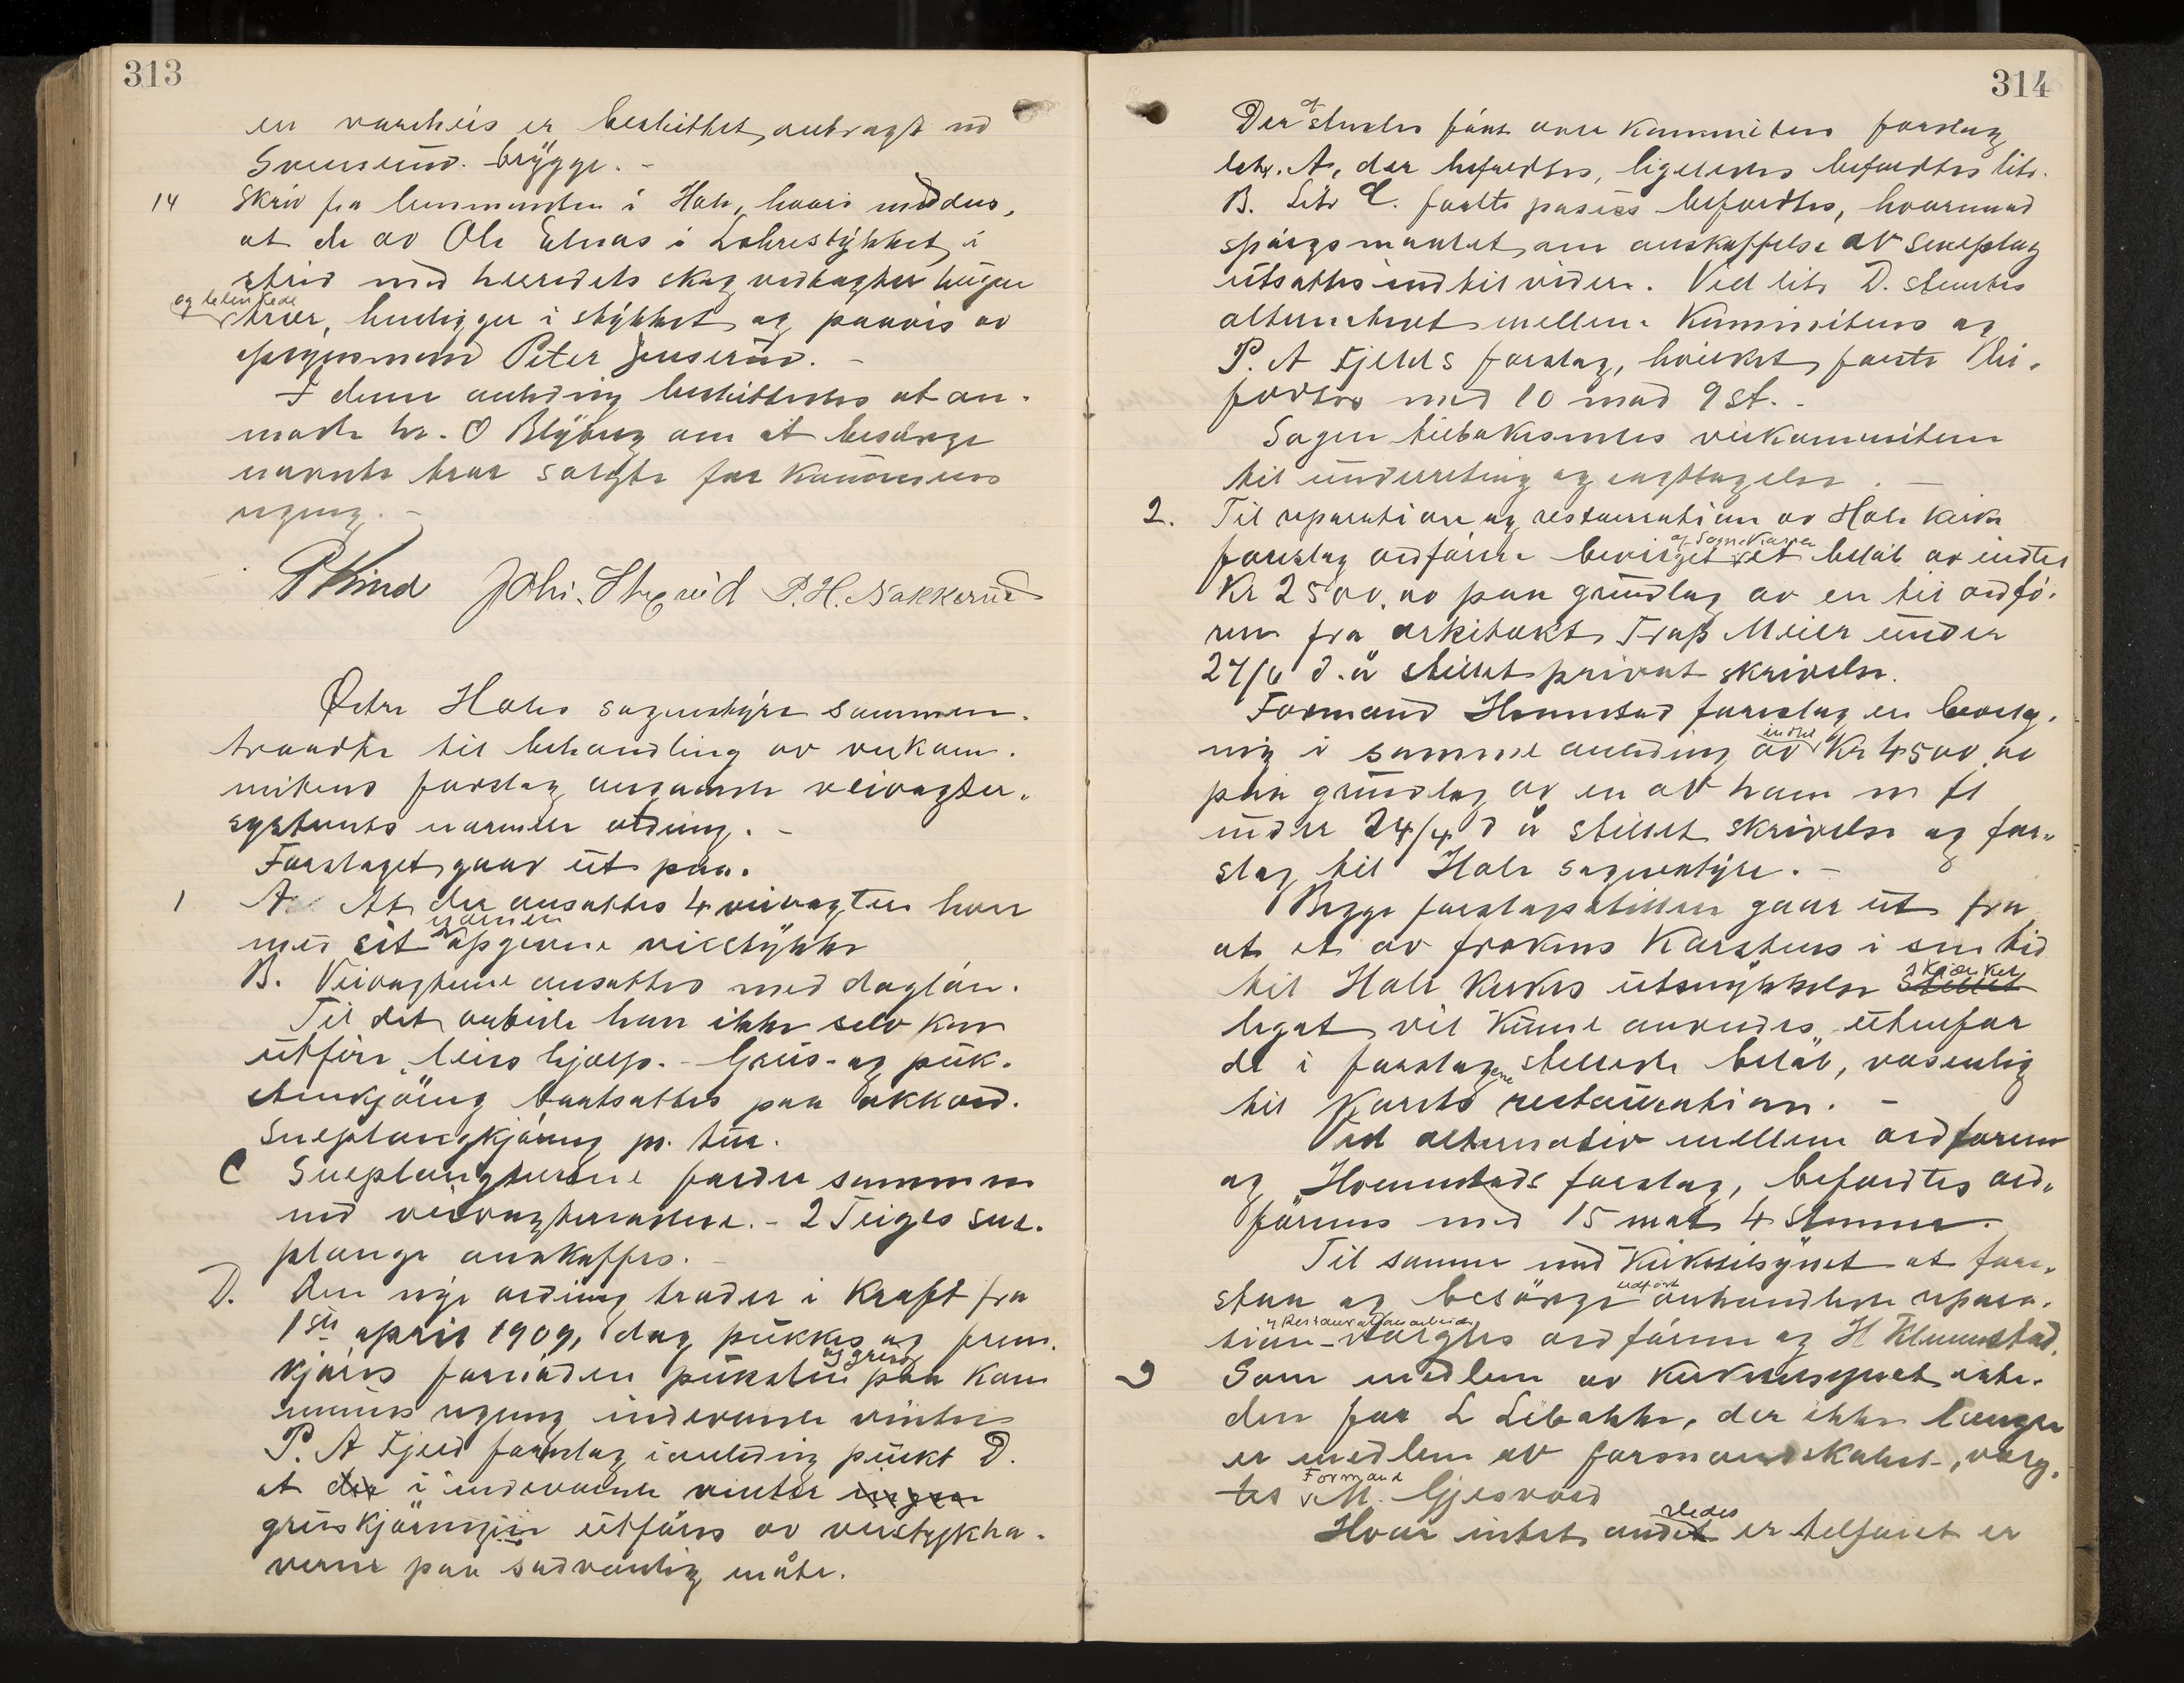 313
en vareheis er besluttet anbragt ved
Svensrud brygge. -
14 Skriv fra lensmanden i Hole, hvori meddeles,
at de av Ole Elnæs i Lohrestykket i
strid med herredets skog vedtægter hugne
og blinkede
trær, henligger i stykket og paavis av
opsynsmand Peter Juserud. -
I denne anledning besluttedes at an-
mode hr. O Blyberg om at besørge
nævnte trær solgte for kommunens
regning. -
P Hind Johs. Stuxrud P. H. Nakkerud
Østre Holes sognestyre sammen-
traadte til behandling av veikom-
miteens forslag angaaende veivogter-
systemets nærmere ordning. -
Forslaget gaar ut paa.
1 A. At der ansættes 4 veivogter hver
nærmer
med sit opgivne veistykke
B. Veivogterne ansættes med dagløn.
Til det arbeide han ikke selv kan
utføre leies hjælp. - Grus- og puk-
stenkjøring bortsættes paa akkord.
Sneplougkjøring pr. tur.
C Sneplougturene fordeles sammen
med veivogterarbeide. - 2 Teiges sne-
plouge anskaffes. -
D. Den nye ordning træder i kraft fra
1ste april 1909, dog pukkes og frem-
og grus
kjøres fornøden puksten paa kom
munens regning indeværende vinter
P. A Fjeld foreslog i anledning punkt D.
at der i indeværende vinter ingen
gruskjøringen utføres av veistykkha-
verne paa sædvanlig måte.
314
Der stemtes først over kommiteens forslag
litr. A, der befordtes, ligeledes befordtes litr.
B. Litr C. forlte passus befordtes, hvorimod
spørgsmaalet om anskaffelse av sneploug
utsattes indtil videre. Ved litr D. stemtes
alternativt mellem kommiteens og
P. A Fjelds forslag, hvilket første bi-
fordtes med 10 mod 9 st. -
Sagen tilbakesendes veikommiteen
til underretning og iagttagelse. -
2. Til reparation og restauration av Hole kirke
af Sognekassen
foreslog ordføreren bevilget et beløb av indtil
Kr 2500.00 paa grundlag av en til ordfø-
ren fra arkitekt Trap Meier under
27/6 d.å stillet privat skrivelse.
Formand Homstad foreslog en bevilg-
indtil
ning i samme anledning av Kr 4500 00
paa grundlag av en av ham m fl
under 24/4 d å stillet skrivelse og for-
slag til Hole sognestyre. -
Begge forslagsstillere gaar ut fra
at et av frøkens Karstens i sin tid
skjænket
til Hole kirkes utsmykkelse stillet
legat vil kunne anvendes utenfor
de i forslagene stillede beløb, væsentlig
til Korets restauration. -
Ved alternativ mellem ordføreren
og Homstads forslag, befordtes ord-
førerens med 15 mot 4 stemmer.
Til sammen med kirketilsynet at fore-
udført
staa og besørge omhandlede repara-
og Restaurationsarbeide
tion - valgtes ordføreren og H Klemmetsrud.
3 Som medlem av kirketilsynet iste-
den for L Libakke, der ikke længer
er medlem av formandskabet, valg-
Formand
tes M. Gjesvold
ledes
Hvor intet andet er tilføiet er